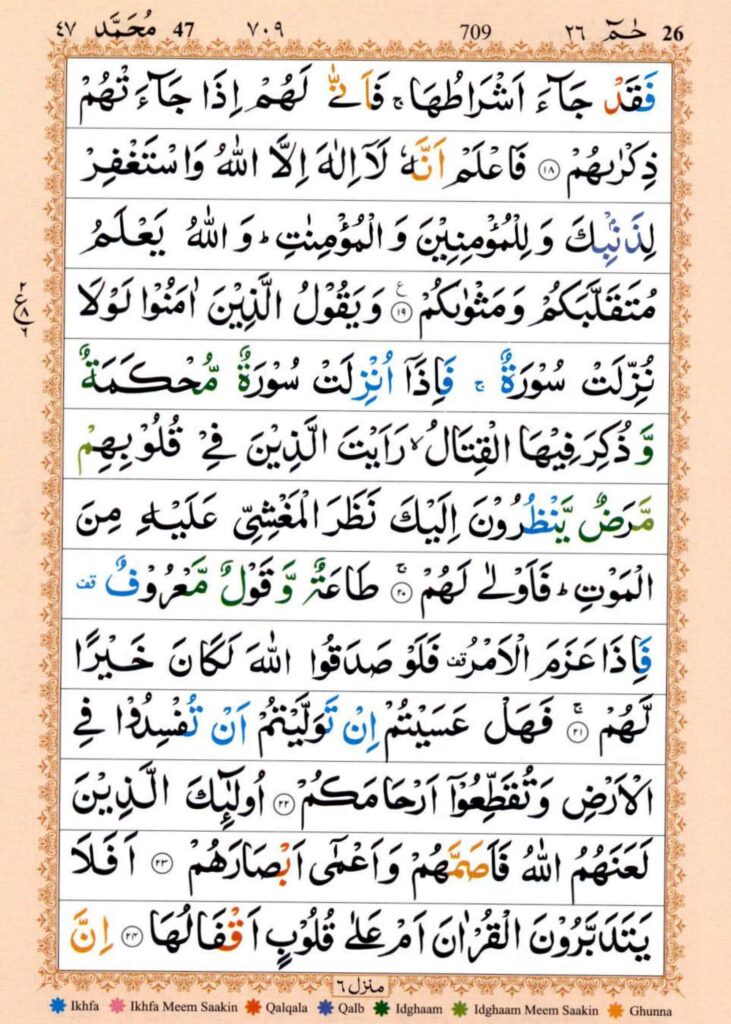 ٤٧ مُحَمَّد 47 ٧٠٩ 709 حٰمٓ ٢٦ 26
فَقَدْ جَآءَ اَشْرَاطُهَا ۚ فَاَنّٰى لَهُمْ اِذَا جَآءَتْهُمْ
ذِكْرٰىهُمْ ۝١٨ فَاعْلَمْ اَنَّهٗ لَآ اِلٰهَ اِلَّا اللّٰهُ وَاسْتَغْفِرْ
لِذَنْۢبِكَ وَ لِلْمُؤْمِنِيْنَ وَ الْمُؤْمِنٰتِ ؕ وَ اللّٰهُ يَعْلَمُ
مُتَقَلَّبَكُمْ وَمَثْوٰىكُمْ ۝١٩ ع وَيَقُوْلُ الَّذِيْنَ اٰمَنُوْا لَوْلَا
٢ ع ٨ ٦
نُزِّلَتْ سُوْرَةٌ ۚ فَاِذَآ اُنْزِلَتْ سُوْرَةٌ مُّحْكَمَةٌ
وَّ ذُكِرَ فِيْهَا الْقِتَالُ ۙ رَاَيْتَ الَّذِيْنَ فِيْ قُلُوْبِهِمْ
مَّرَضٌ يَّنْظُرُوْنَ اِلَيْكَ نَظَرَ الْمَغْشِيِّ عَلَيْهِ مِنَ
الْمَوْتِ ؕ فَاَوْلٰى لَهُمْ ۚ ۝٢٠ طَاعَةٌ وَّ قَوْلٌ مَّعْرُوْفٌ قف
فَاِذَا عَزَمَ الْاَمْرُ قف فَلَوْ صَدَقُوا اللّٰهَ لَكَانَ خَيْرًا
لَّهُمْ ۚ ۝٢١ فَهَلْ عَسَيْتُمْ اِنْ تَوَلَّيْتُمْ اَنْ تُفْسِدُوْا فِي
الْاَرْضِ وَتُقَطِّعُوْٓا اَرْحَامَكُمْ ۝٢٢ اُولٰٓئِكَ الَّذِيْنَ
لَعَنَهُمُ اللّٰهُ فَاَصَمَّهُمْ وَاَعْمٰٓى اَبْصَارَهُمْ ۝٢٣ اَفَلَا
يَتَدَبَّرُوْنَ الْقُرْاٰنَ اَمْ عَلٰى قُلُوْبٍ اَقْفَالُهَا ۝٢٤ اِنَّ
منزل ٦
Ikhfa Ikhfa Meem Saakin Qalqala Qalb Idghaam Idghaam Meem Saakin Ghunna